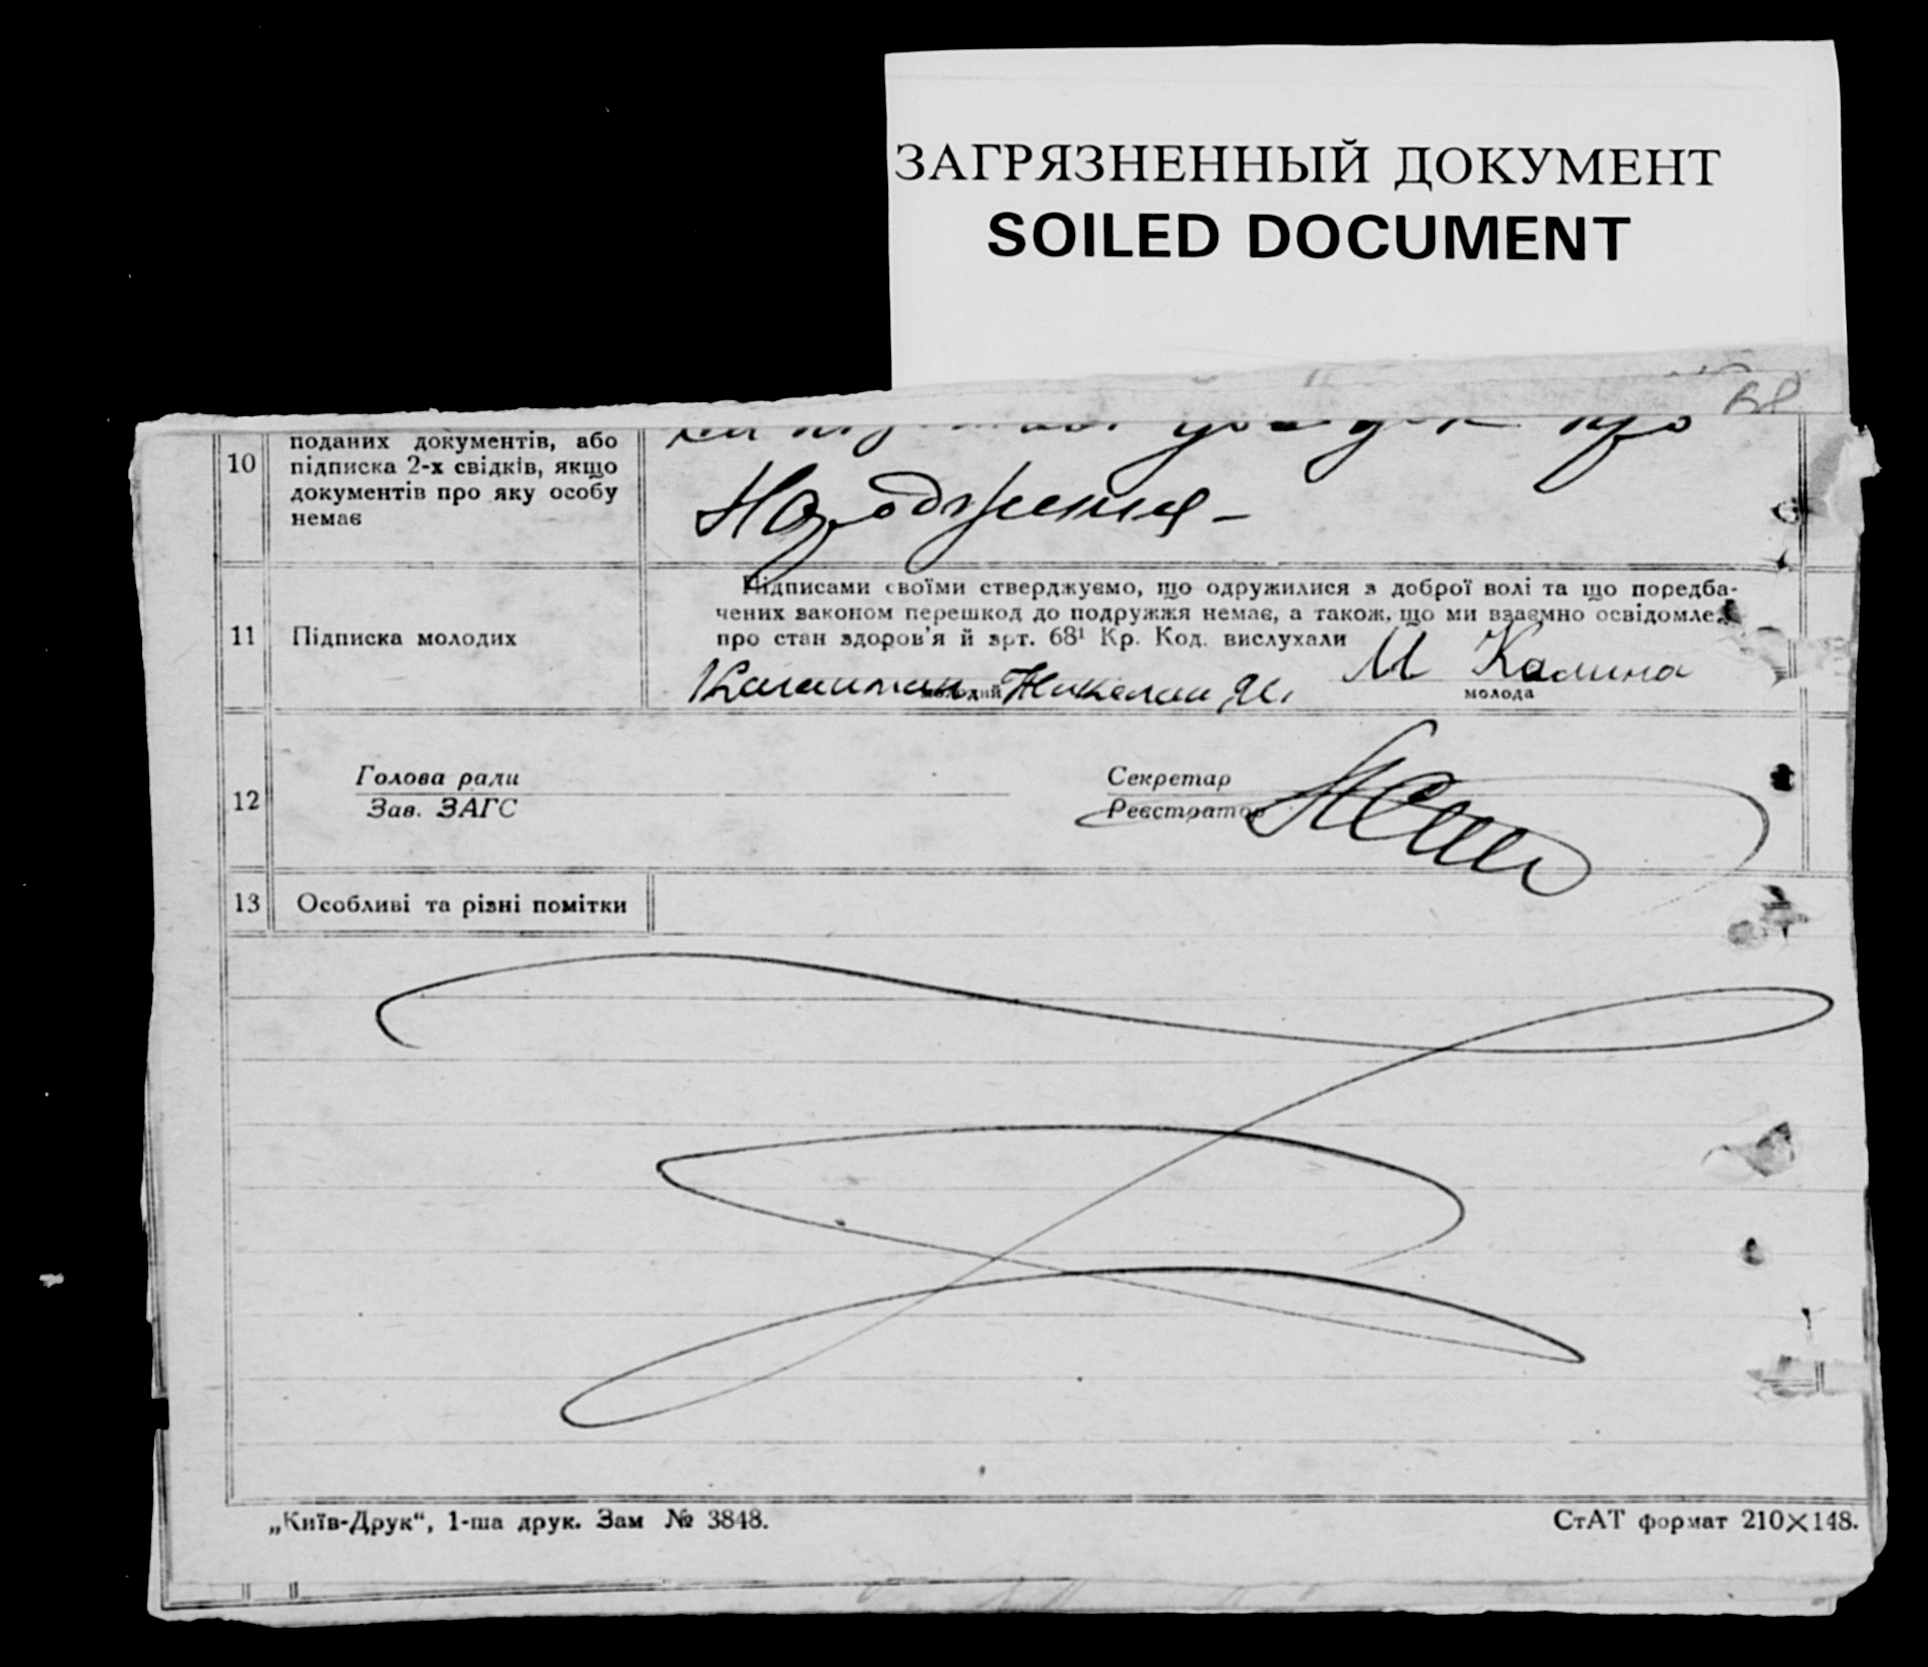 ЗАГРЯЗНЕННЫЙ ДОКУМЕНТ
SOILED DOCUMENT
68
10
поданих документів, або
підписка 2-х свідків, якщо
документів про яку особу
немає
про
Народження -
11
Підписка молодих
Підписами своїми стверджуємо, що одружилися з доброї волі та що поредба-
чених законом перешкод до подружжя немає, а також, що ми взаємно освідомле
про стан здоров'я й арт. 68¹ Кр. Код. вислухали
М Калина
молодий
молода
12
Голова ради
Зав. ЗАГС
Секретар
Реєстратор
13
Особливі та різні помітки
„Київ-Друк“, 1-ша друк. Зам № 3848.
СтАТ формат 210×148.